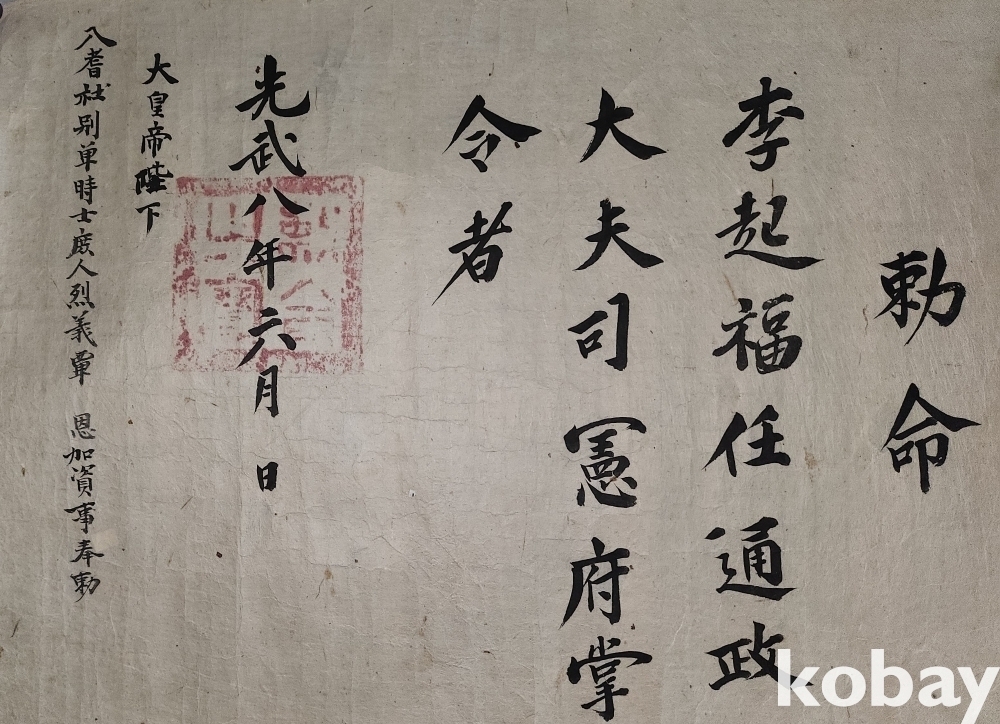 勅命
李起福任通政
大夫司憲府掌
令者
光武八年六月 日
大皇帝陛下
八耆社別单時士庶人烈義覃 恩加資事奉勅
kobay